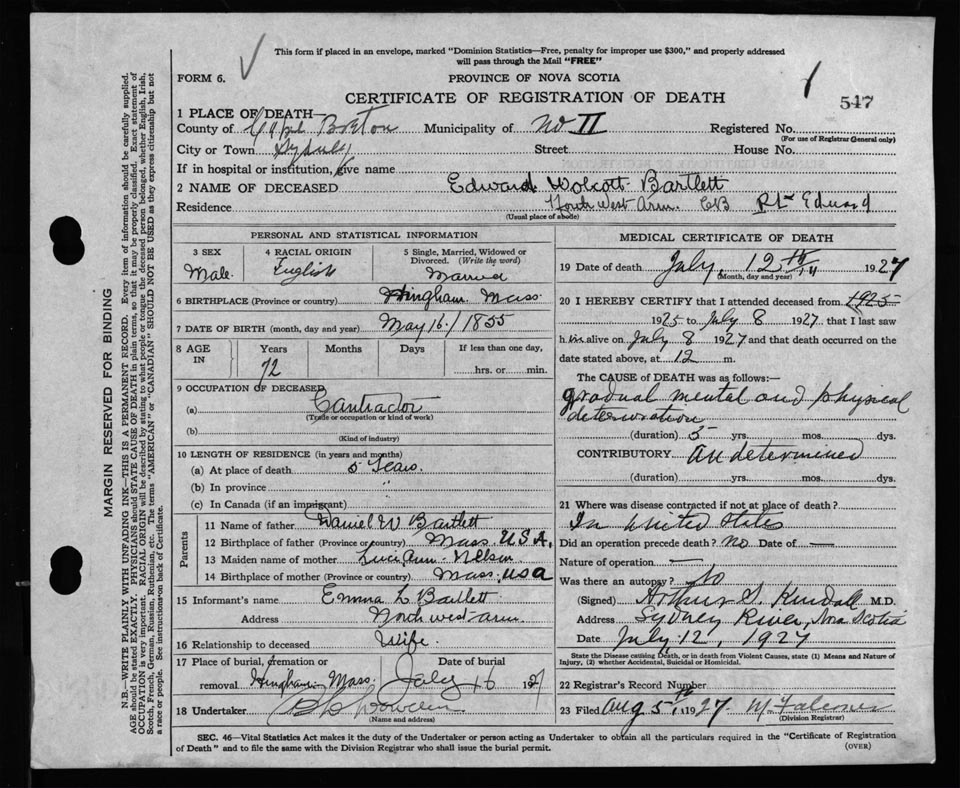 This form if placed in an envelope, marked "Dominion Statistics—Free, penalty for improper use $300," and properly addressed
will pass through the Mail "FREE"
FORM 6.
PROVINCE OF NOVA SCOTIA
CERTIFICATE OF REGISTRATION OF DEATH
547
1 PLACE OF DEATH—
County of Cape Breton Municipality of No II Registered No.
(For use of Registrar General only)
City or Town Sydney Street House No.
If in hospital or institution, give name
2 NAME OF DECEASED Edward Wolcott Bartlett
Residence North West Arm. CB Pt Edward
(Usual place of abode)
PERSONAL AND STATISTICAL INFORMATION
3 SEX Male
4 RACIAL ORIGIN English
5 Single, Married, Widowed or Divorced. (Write the word) Married
6 BIRTHPLACE (Province or country) Hingham Mass.
7 DATE OF BIRTH (month, day and year) May 16/1855
8 AGE IN Years Months Days If less than one day,
72 hrs. or min.
9 OCCUPATION OF DECEASED
(a) Contractor
(Trade or occupation or kind of work)
(b)
(Kind of industry)
10 LENGTH OF RESIDENCE (in years and months)
(a) At place of death 5 Years.
(b) In province "
(c) In Canada (if an immigrant)
Parents
11 Name of father Daniel W Bartlett
12 Birthplace of father (Province or country) Mass. U.S.A.
13 Maiden name of mother Luci Ann Nelson
14 Birthplace of mother (Province or country) Mass. USA
15 Informant's name Emma L Bartlett
Address North west arm.
16 Relationship to deceased Wife
17 Place of burial, cremation or Date of burial
removal Hingham Mass. July 16 1927
18 Undertaker
(Name and address)
MEDICAL CERTIFICATE OF DEATH
19 Date of death July, 12th 1927
(Month, day and year)
20 I HEREBY CERTIFY that I attended deceased from 1925
1925 to July 8 1927 that I last saw
him alive on July 8 1927 and that death occurred on the
date stated above, at 12 m.
The CAUSE OF DEATH was as follows:—
gradual mental and physical
deterioration
(duration) 5 yrs. mos. dys.
CONTRIBUTORY undetermined
(duration) yrs. mos. dys.
21 Where was disease contracted if not at place of death?
In United States
Did an operation precede death? No Date of —
Nature of operation —
Was there an autopsy? No
(Signed) Arthur S. Kendall M.D.
Address Sydney River, Nova Scotia
Date July 12, 1927
State the Disease causing Death, or in death from Violent Causes, state (1) Means and Nature of
Injury, (2) whether Accidental, Suicidal or Homicidal.
22 Registrar's Record Number
23 Filed Aug 5th 1927 M. Falconer
(Division Registrar)
SEC. 46—Vital Statistics Act makes it the duty of the Undertaker or person acting as Undertaker to obtain all the particulars required in the "Certificate of Registration
of Death" and to file the same with the Division Registrar who shall issue the burial permit.
(OVER)
MARGIN RESERVED FOR BINDING
N.B.—WRITE PLAINLY WITH UNFADING INK—THIS IS A PERMANENT RECORD. Every item of information should be carefully supplied.
AGE should be stated EXACTLY. PHYSICIANS should STATE CAUSE OF DEATH in plain terms, so that it may be properly classified. Exact statement of
OCCUPATION is very important. RACIAL ORIGIN will be described by stating to what people or tongue the deceased person belonged, whether English, Irish,
Scotch, French, German, Russian, Ruthenian, etc. The terms "AMERICAN" or "CANADIAN" SHOULD NOT BE USED as they express citizenship but not
a race or people. See instructions on back of Certificate.